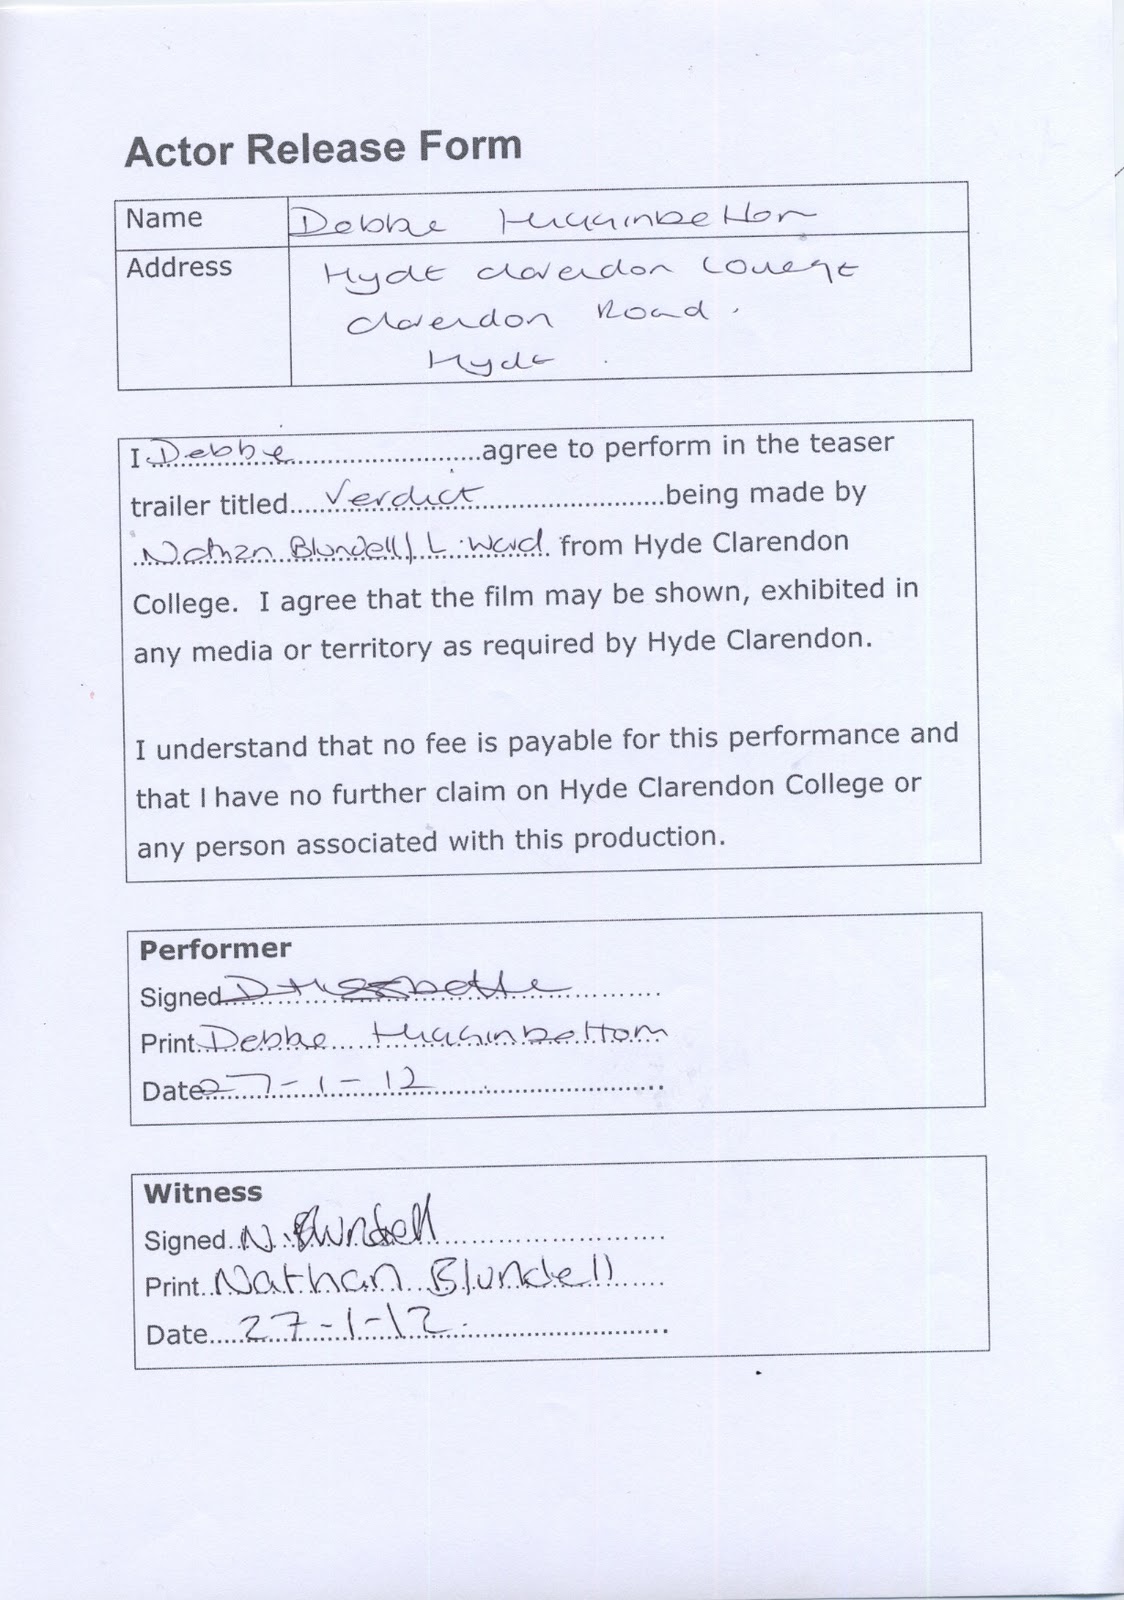 Actor Release Form
Name Debbie Higginbottom
Address Hyde Clarendon College
Clarendon Road.
Hyde.
I Debbie agree to perform in the teaser
trailer titled Verdict being made by
Nathan Blundell / L. Ward from Hyde Clarendon
College. I agree that the film may be shown, exhibited in
any media or territory as required by Hyde Clarendon.
I understand that no fee is payable for this performance and
that I have no further claim on Hyde Clarendon College or
any person associated with this production.
Performer
Signed
Print Debbie Higginbottom
Date 27-1-12
Witness
Signed N. Blundell
Print Nathan Blundell
Date 27-1-12.